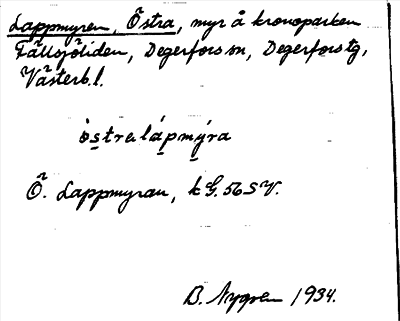 Lappmyren, Östra, myr å kronoparken
Fällsjöliden, Degerfors sn, Degerfors tg,
Västerb. l.
östra lápmýra
Ö. Lappmyran, k G. 56 S V.
B. Nygren 1934.